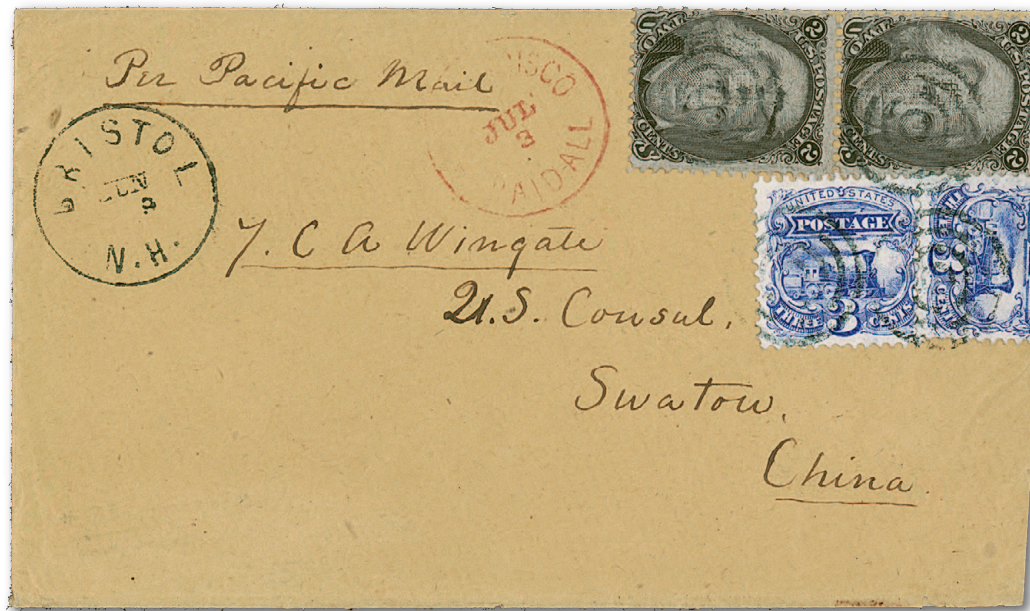 Per Pacific Mail
BRISTOL
JUN
N.H.
ISCO
JUL
3
PAID ALL
UNITED STATES
POSTAGE
THREE 3 CENTS
J. C. A. Wingate
U.S. Consul,
Swatow,
China